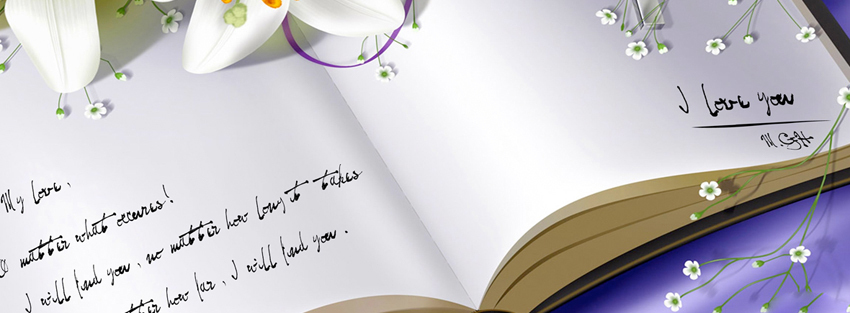 My Love,
matter what occures!
I will find you, no matter how long it takes
how far, I will find you.
I love you
M.GH